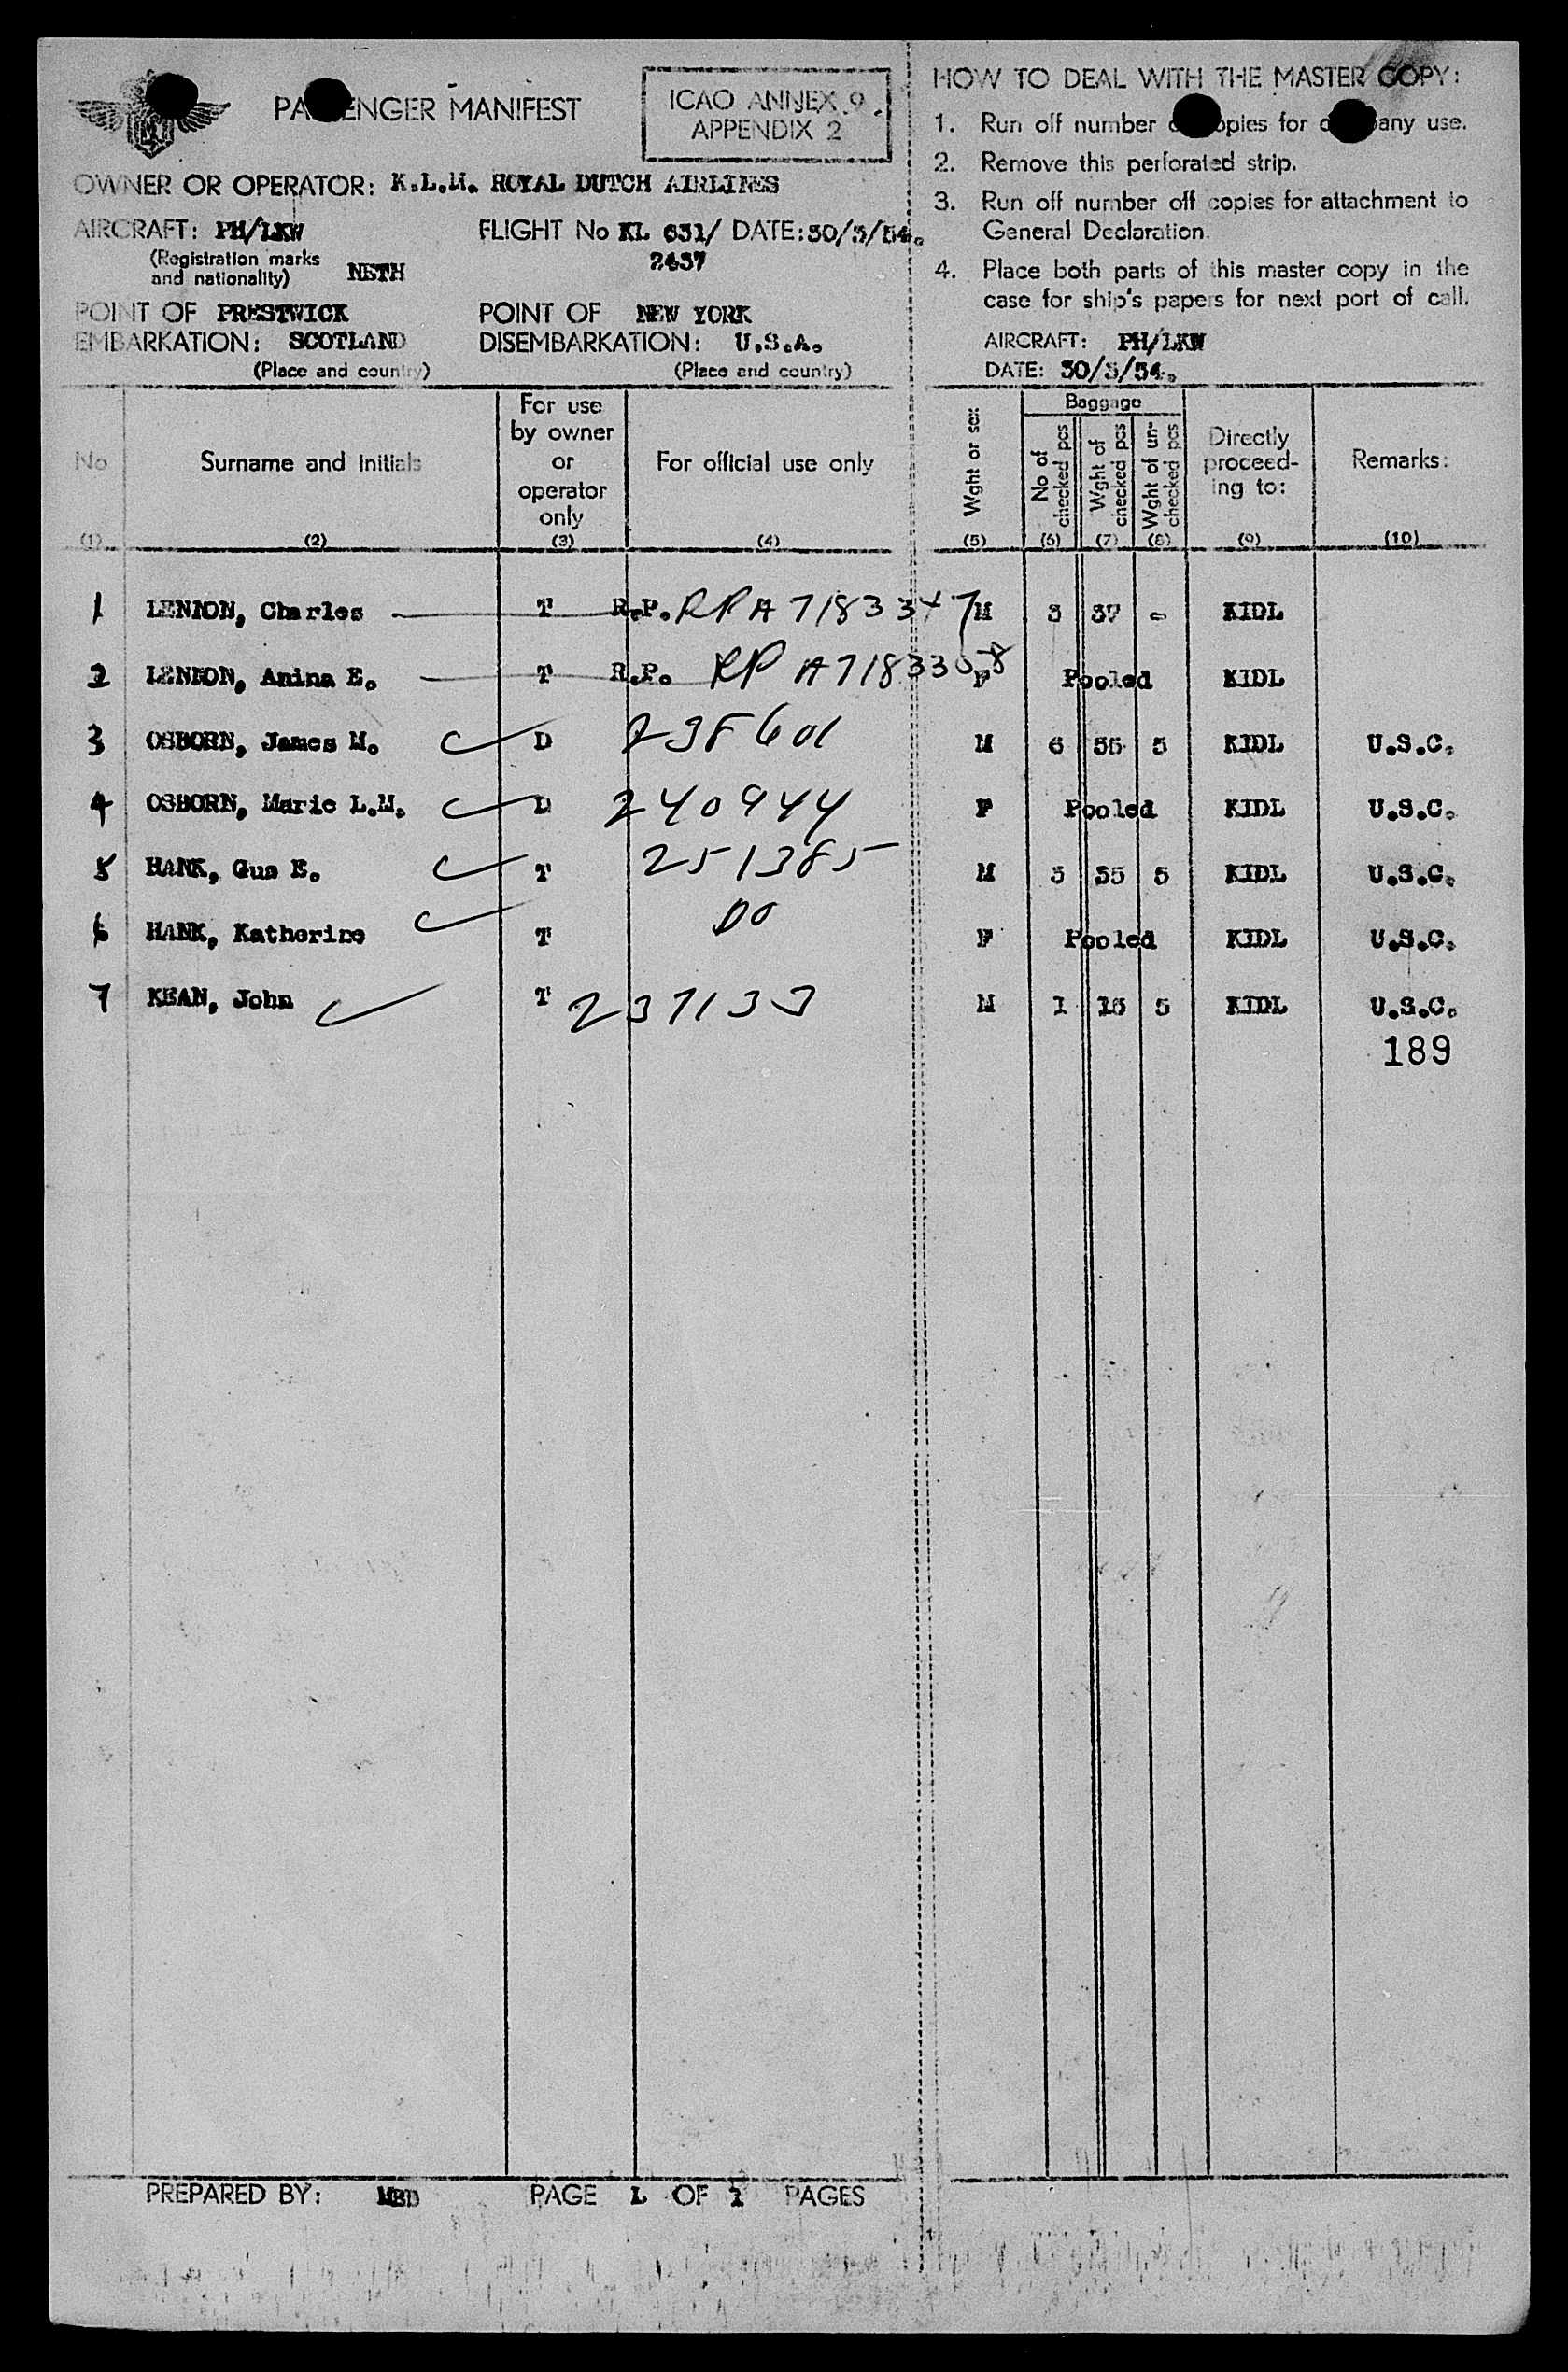 PASSENGER MANIFEST
ICAO ANNEX 9
APPENDIX 2
OWNER OR OPERATOR: K.L.M. ROYAL DUTCH AIRLINES
AIRCRAFT: PH/LKW FLIGHT No KL 631/ DATE: 30/3/54.
(Registration marks and nationality) NETH 2437
POINT OF EMBARKATION: PRESTWICK SCOTLAND
(Place and country)
POINT OF DISEMBARKATION: NEW YORK U.S.A.
(Place and country)
HOW TO DEAL WITH THE MASTER COPY:
1. Run off number of copies for company use.
2. Remove this perforated strip.
3. Run off number off copies for attachment to
General Declaration.
4. Place both parts of this master copy in the
case for ship's papers for next port of call.
AIRCRAFT: PH/LKW
DATE: 30/3/54.
No (1)
Surname and initials (2)
For use by owner or operator only (3)
For official use only (4)
Wght or sex (5)
Baggage
No of checked pcs (6)
Wght of checked pcs (7)
Wght of un-checked pcs (8)
Directly proceed-ing to: (9)
Remarks: (10)
1 Charles T R.P. RP A7183347 M 3 37 - KIDL
2 Anina E. T R.P. RP A718 F Pooled KIDL
3 OSBORN, James M. D 238601 M 6 55 5 KIDL U.S.C.
4 OSBORN, Marie L.M. D 240944 F Pooled KIDL U.S.C.
5 HANK, Gus E. T 251385 M 3 35 5 KIDL U.S.C.
6 HANK, Katherine T DO F Pooled KIDL U.S.C.
7 KEAN, John T 237133 M 1 15 5 KIDL U.S.C.
189
PREPARED BY: MBD PAGE 1 OF 1 PAGES